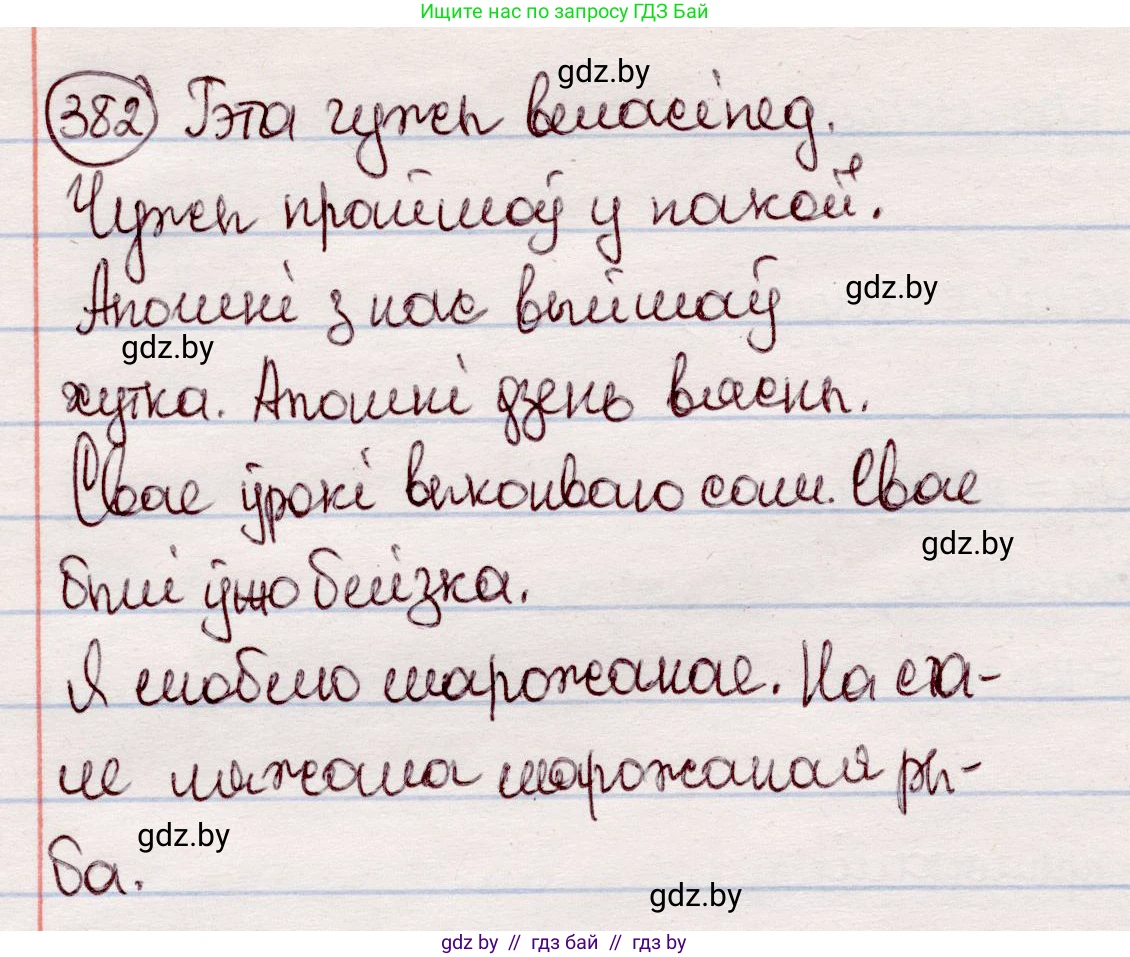 Ищите нас по запросу ГДЗ Бай
gdz.by
382 Гэта чужы веласіпед.
Чужы прайшоў у пакой.
Апошні з нас выйшаў
gdz.by
gdz.by
хутка. Апошні дзень вясны.
Свае ўрокі выконваю сам. Свае
gdz.by
былі ўжо блізка.
Я люблю марожанае. На ста-
ле ляжала марожаная ры-
gdz.by
ба.
gdz.by
gdz by // гдз бай // гдз by